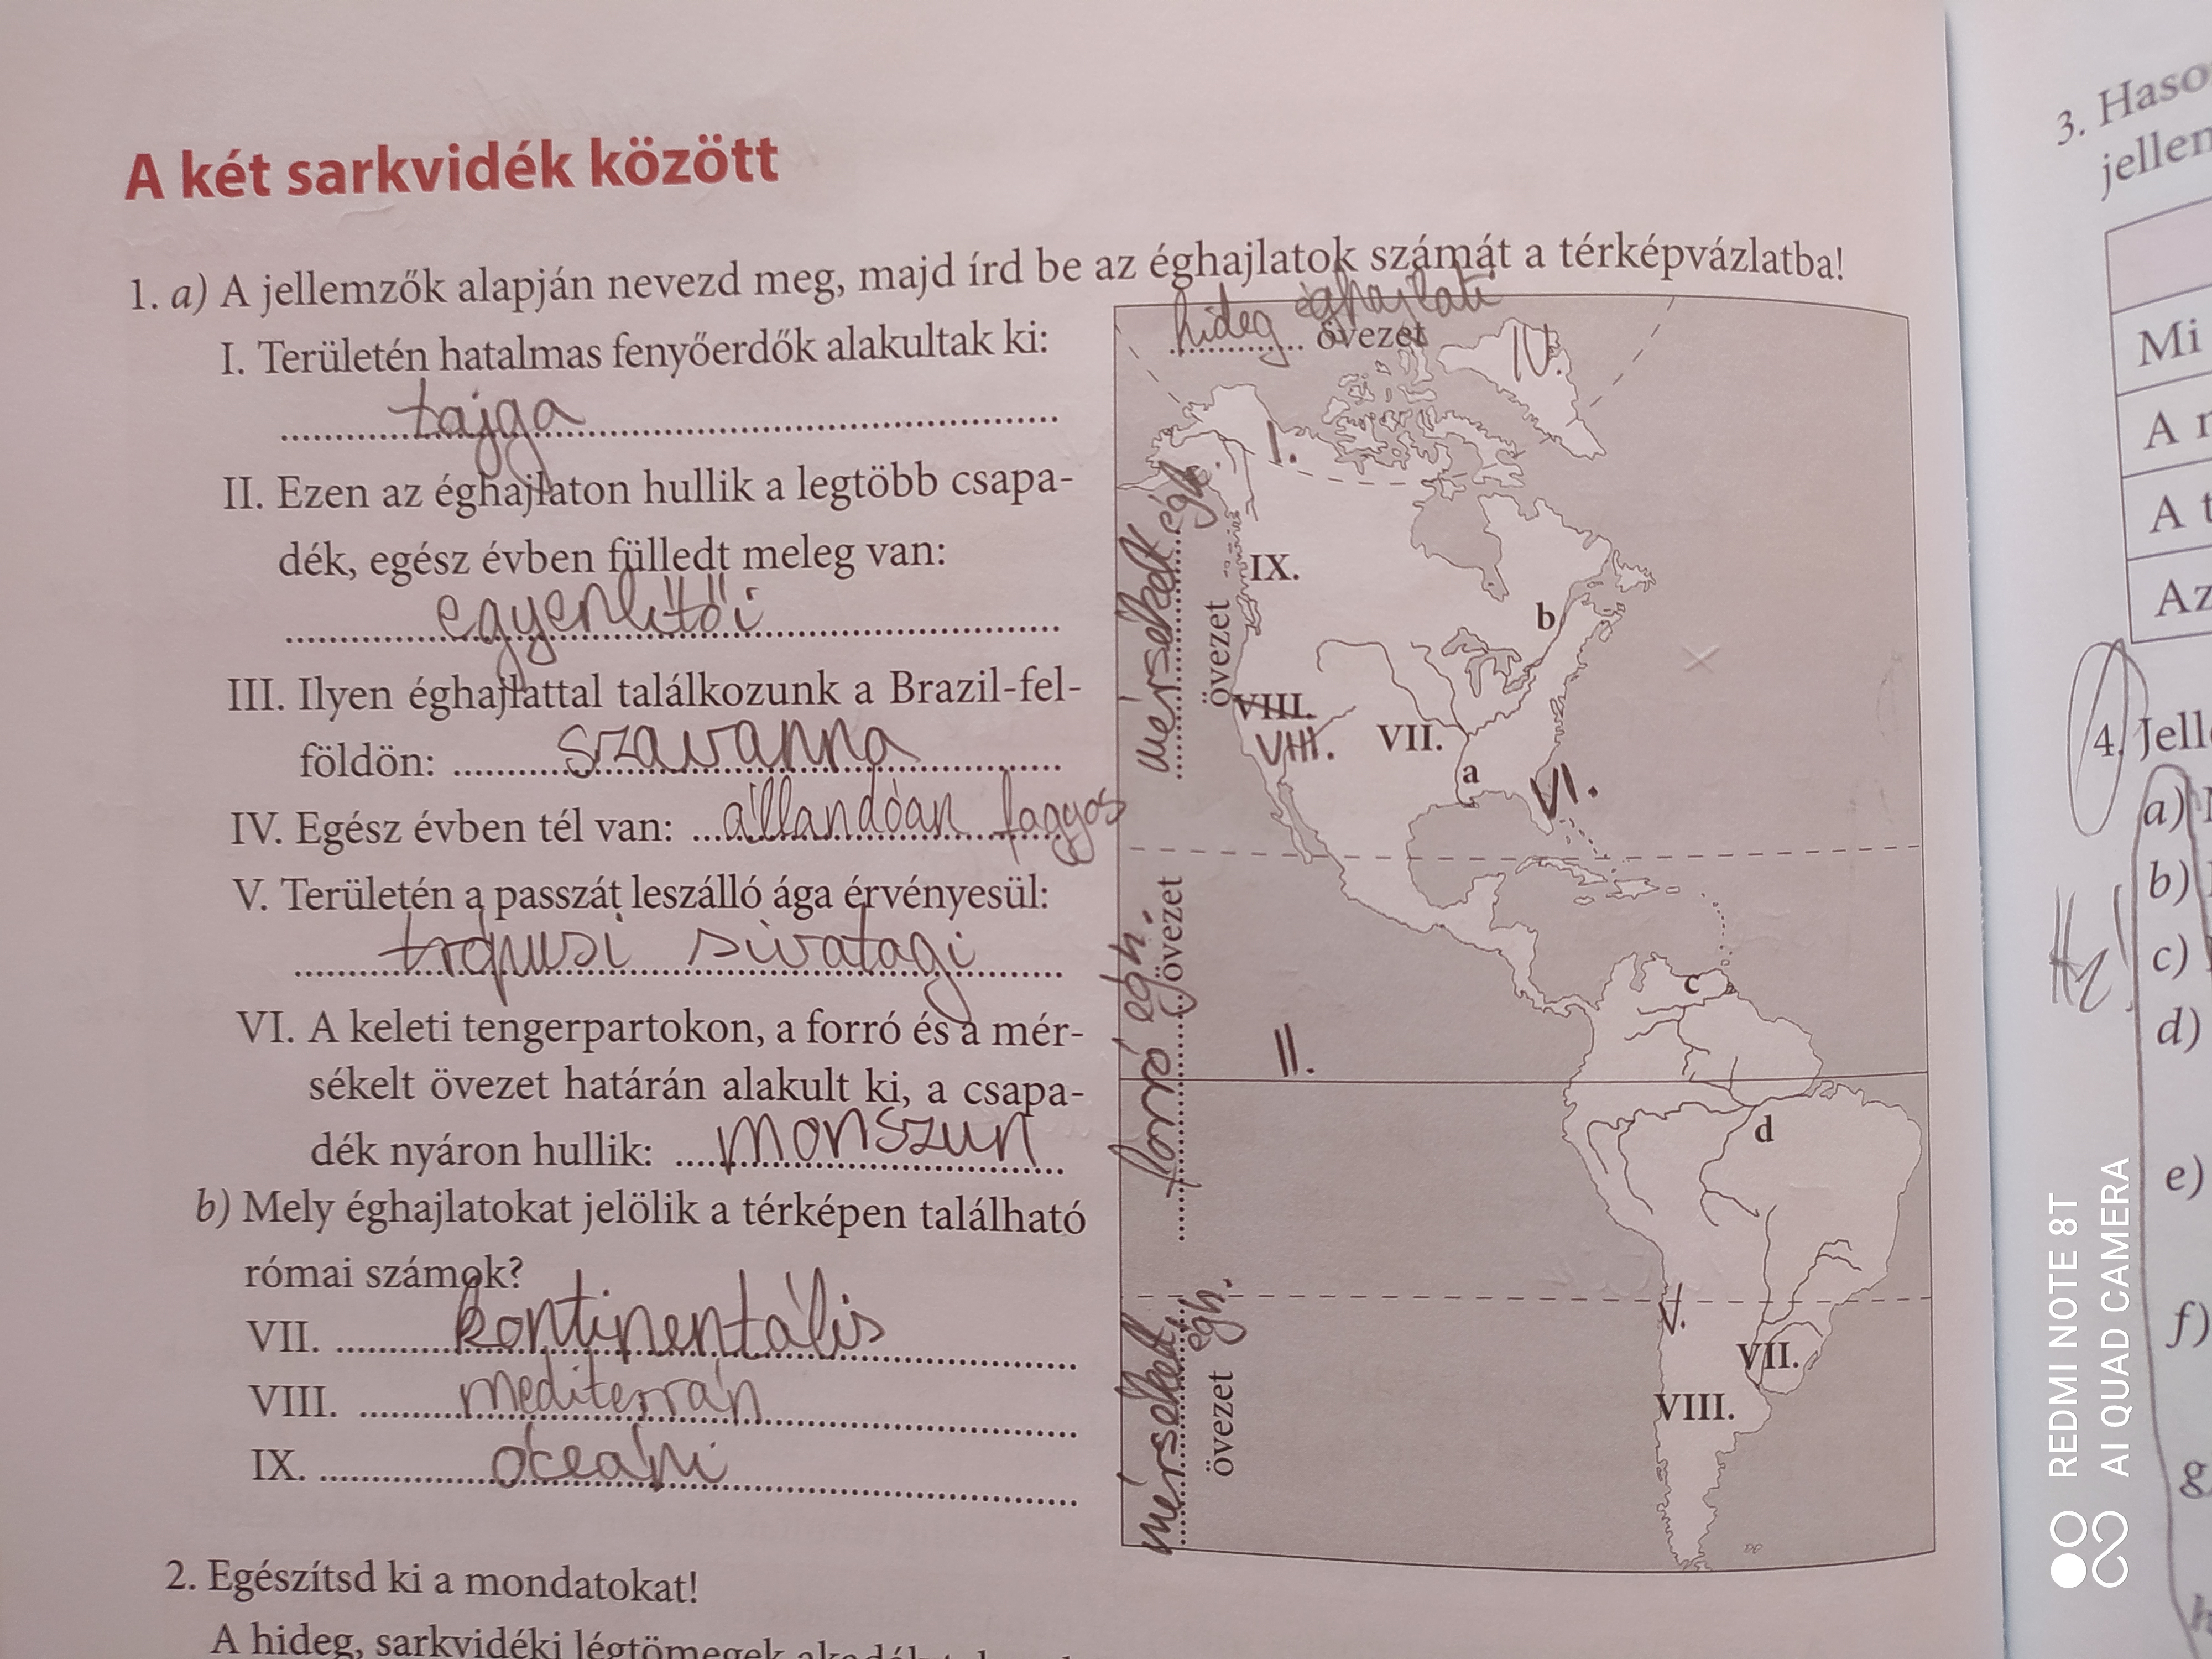 A két sarkvidék között
1. a) A jellemzők alapján nevezd meg, majd írd be az éghajlatok számát a térképvázlatba!
I. Területén hatalmas fenyőerdők alakultak ki:
tajga
II. Ezen az éghajlaton hullik a legtöbb csapa-
dék, egész évben fülledt meleg van:
egyenlítői
III. Ilyen éghajlattal találkozunk a Brazil-fel-
földön: szavanna
IV. Egész évben tél van: állandóan fagyos
V. Területén a passzát leszálló ága érvényesül:
trópusi sivatagi
VI. A keleti tengerpartokon, a forró és a mér-
sékelt övezet határán alakult ki, a csapa-
dék nyáron hullik: monszun
b) Mely éghajlatokat jelölik a térképen található
római számok?
VII. kontinentális
VIII. mediterrán
IX. óceáni
2. Egészítsd ki a mondatokat!
A hideg, sarkvidéki légtömegek
hideg éghajlati
övezet
IV.
I.
mérsékelt égh.
övezet
IX.
b
VIII.
VIII.
VII.
a
VI.
forró égh.
övezet
c
II.
d
mérsékelt égh.
övezet
V.
VII.
VIII.
3.
4. Jell
Mi
A
A t
Az
a)
b)
c)
d)
e)
f)
g
Hf!
REDMI NOTE 8T
AI QUAD CAMERA